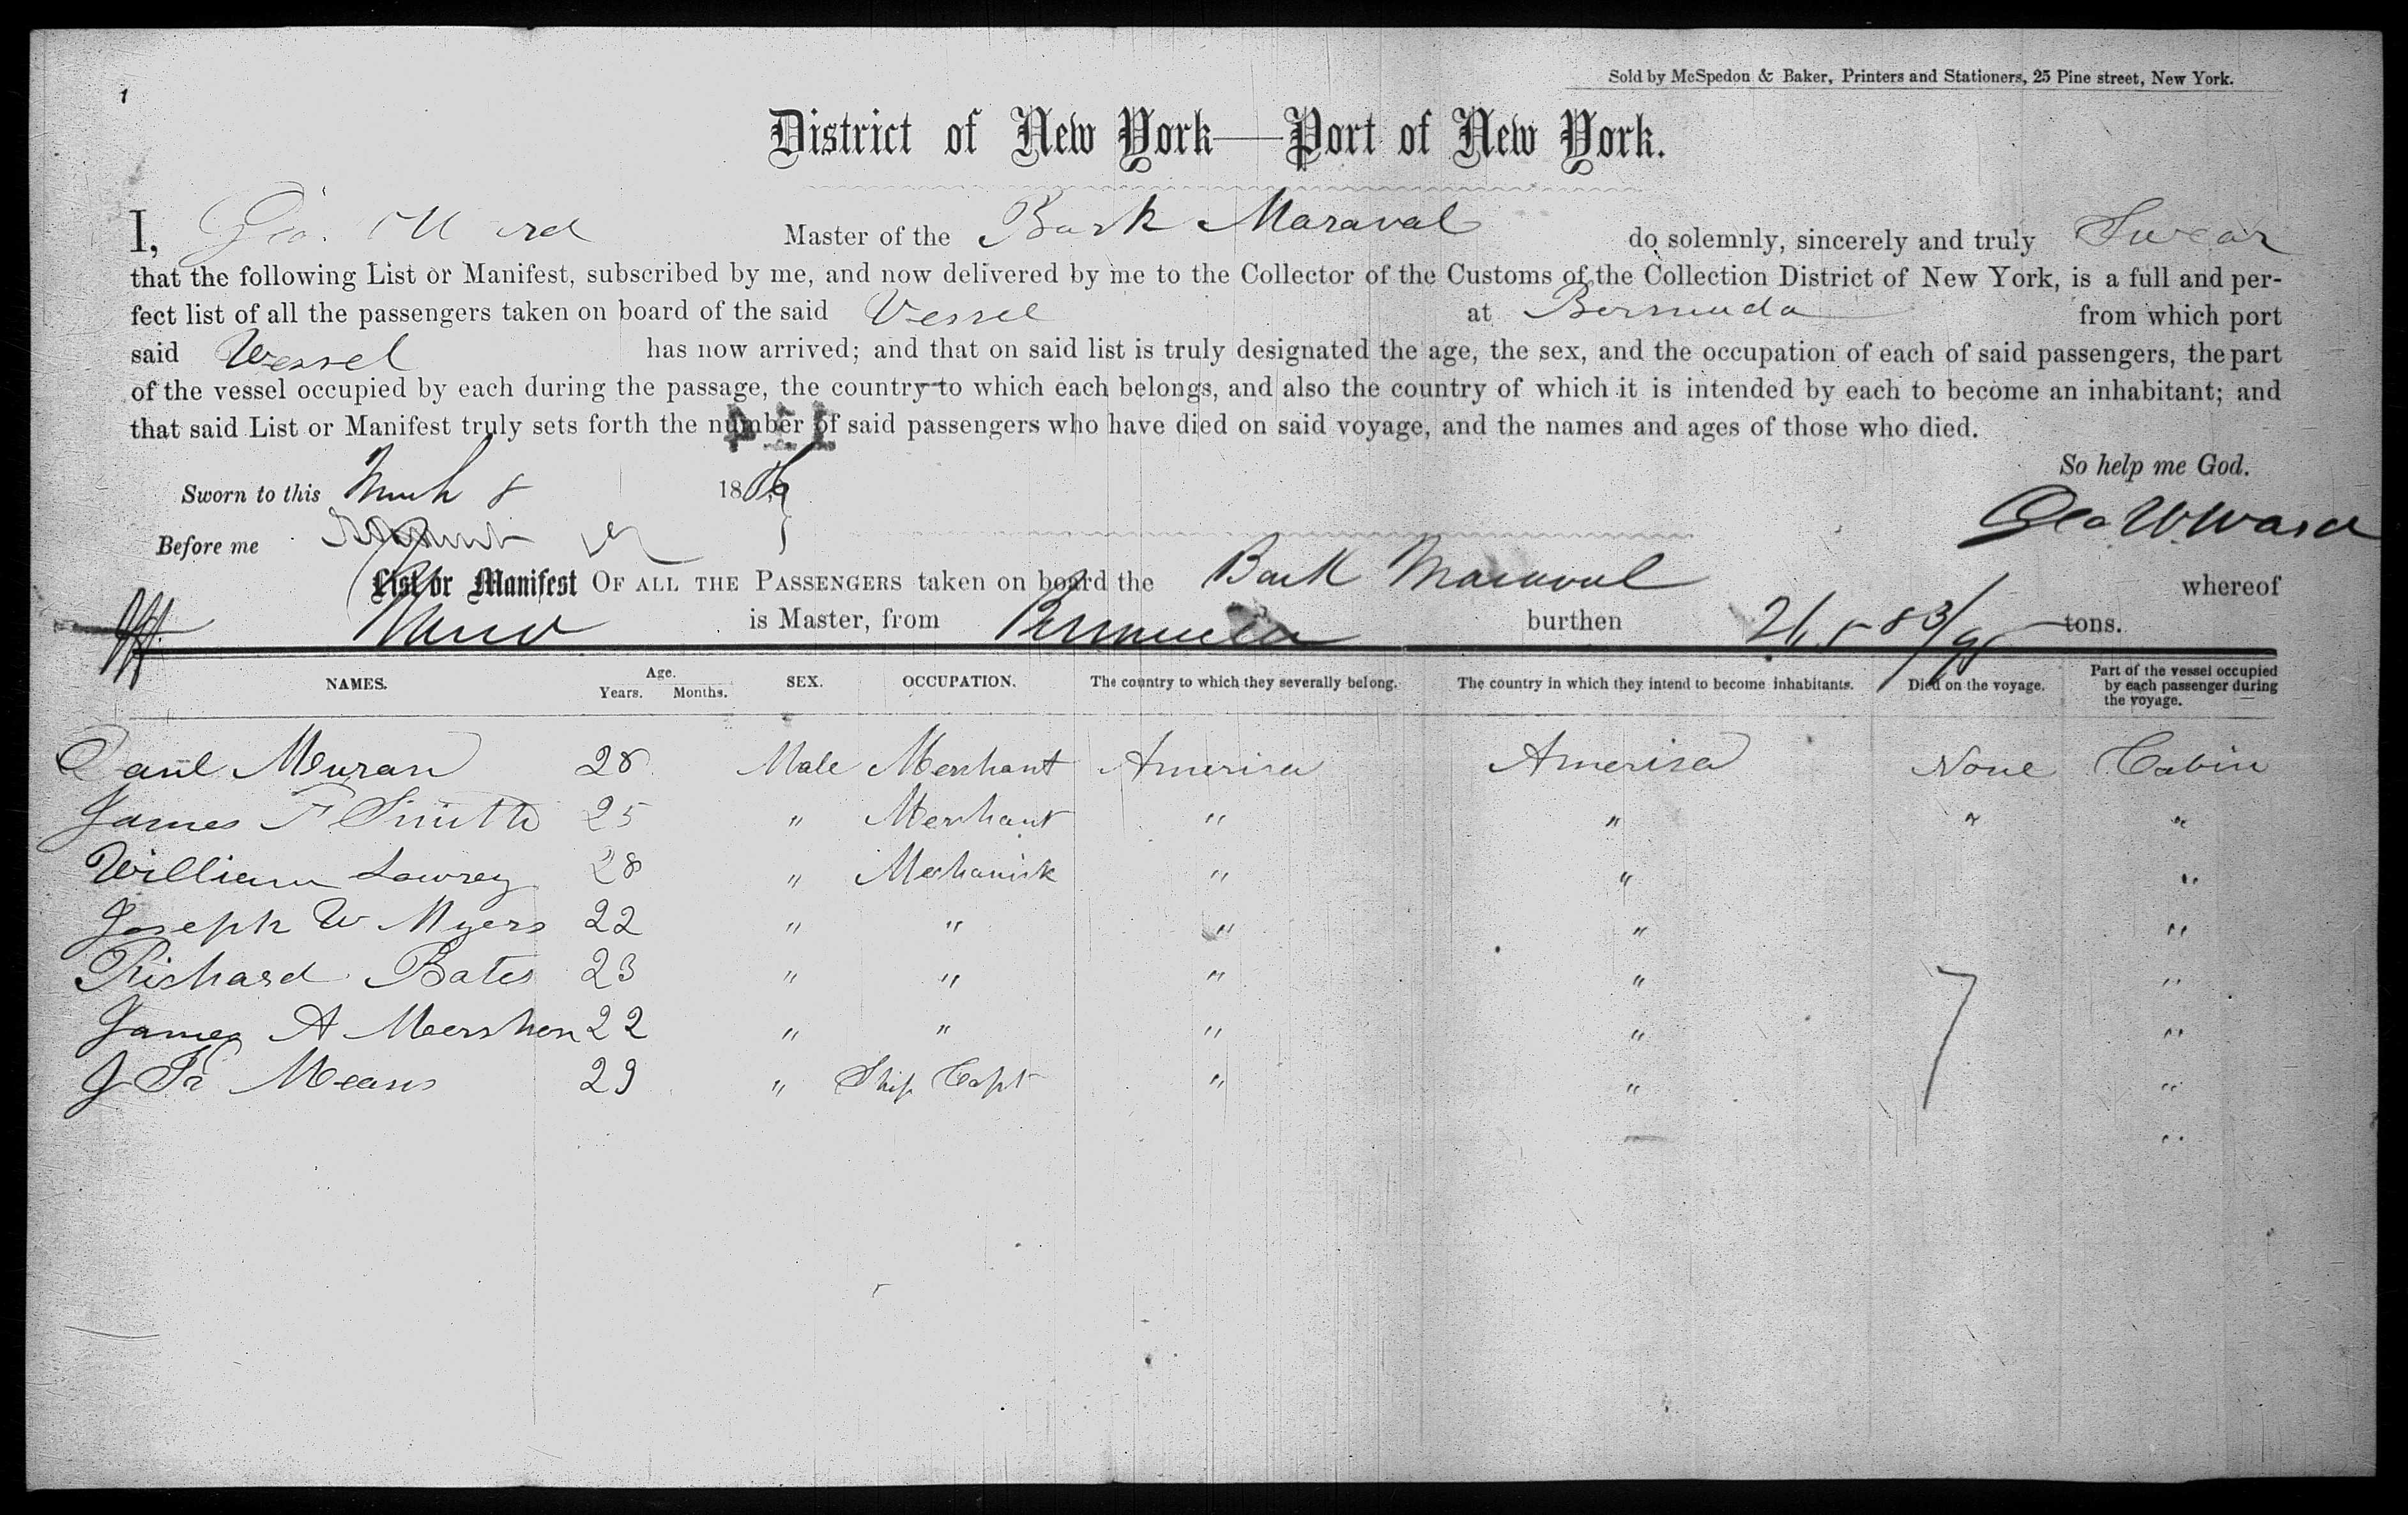 1
Sold by McSpedon & Baker, Printers and Stationers, 25 Pine street, New York.
District of New York—Port of New York.
I, Geo. W Ward Master of the Bark Maraval do solemnly, sincerely and truly Swear
that the following List or Manifest, subscribed by me, and now delivered by me to the Collector of the Customs of the Collection District of New York, is a full and per-
fect list of all the passengers taken on board of the said Vessel at Bermuda from which port
said Vessel has now arrived; and that on said list is truly designated the age, the sex, and the occupation of each of said passengers, the part
of the vessel occupied by each during the passage, the country to which each belongs, and also the country of which it is intended by each to become an inhabitant; and
that said List or Manifest truly sets forth the number of said passengers who have died on said voyage, and the names and ages of those who died.
So help me God.
Sworn to this March 8 186
Geo W. Ward
Before me
List or Manifest OF ALL THE PASSENGERS taken on board the Bark Maraval whereof
Ward is Master, from Bermuda burthen 265 83/95 tons.
NAMES. Age. Years. Months. SEX. OCCUPATION. The country to which they severally belong. The country in which they intend to become inhabitants. Died on the voyage. Part of the vessel occupied by each passenger during the voyage.
Paul Meuran 28 Male Merchant America America None Cabin
James F Smith 25 " Merchant " " " "
William Lowrey 28 " Mechanick " " "
Joseph W Myers 22 " " " " "
Richard Bates 23 " " " " "
James A Mershon 22 " " " " "
J Means 29 " Ship Capt " " "
7
"